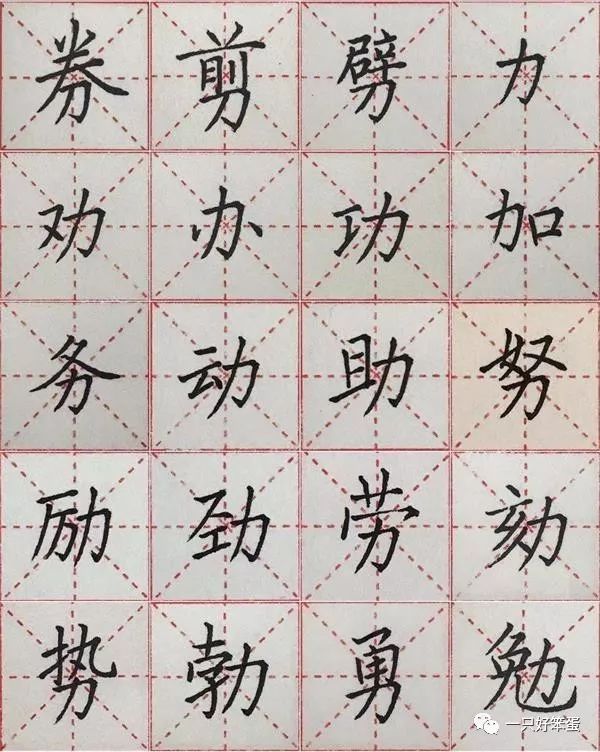 券剪劈力
劝办功加
务动助努
励劲劳劾
势勃勇勉
一只好笨蛋